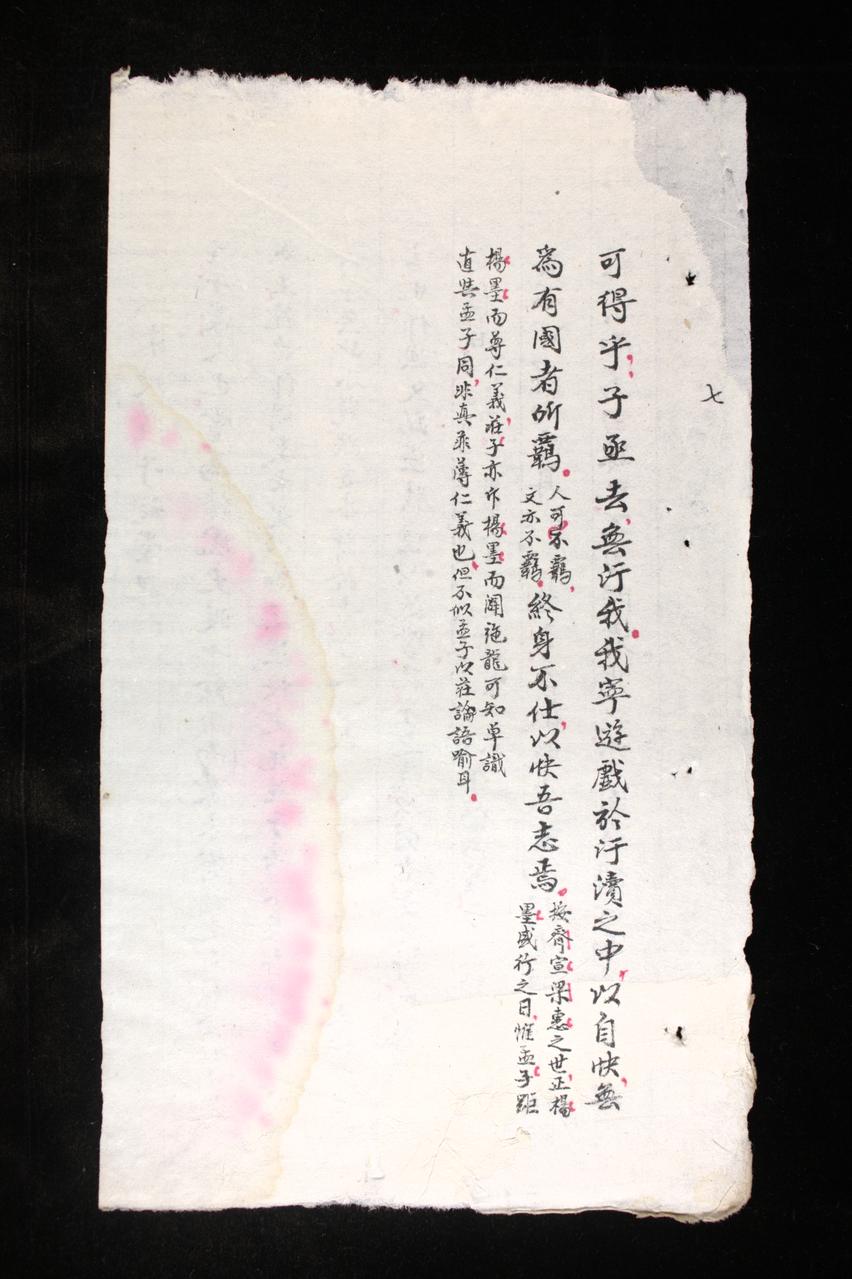 七
可得乎子亟去無汙我我寧遊戲於汙瀆之中以自快無
為有國者所羈
人可不羈
文亦不羈
終身不仕以快吾志焉
按齊宣梁惠之世正楊
墨盛行之日惟孟子距
楊墨而尊仁義莊子亦斥楊墨而闢施龍可知卓識
直與孟子同非真菲薄仁義也但不似孟子以莊論語喻耳